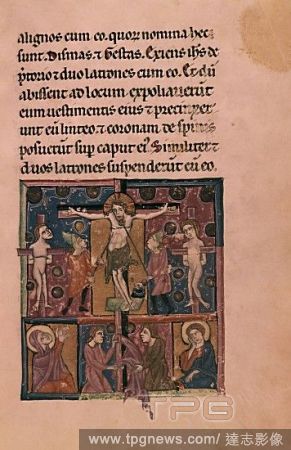 alignos cum eo. quoꝝ nomina hec
sunt. Dismas ⁊ Gestas. Exiens ihs de
p̄torio ⁊ duo latrones cum eo. Et dū
abissent ad locum expoliauerūt
eum uestimentis eius ⁊ precinxer
unt eū linteo ⁊ coronam de spinis
posuerūt sup̄ caput eiꝰ Similiter ⁊
duos latrones suspenderūt cū eo.
TPG
www.tpgnews.com / 達志影像